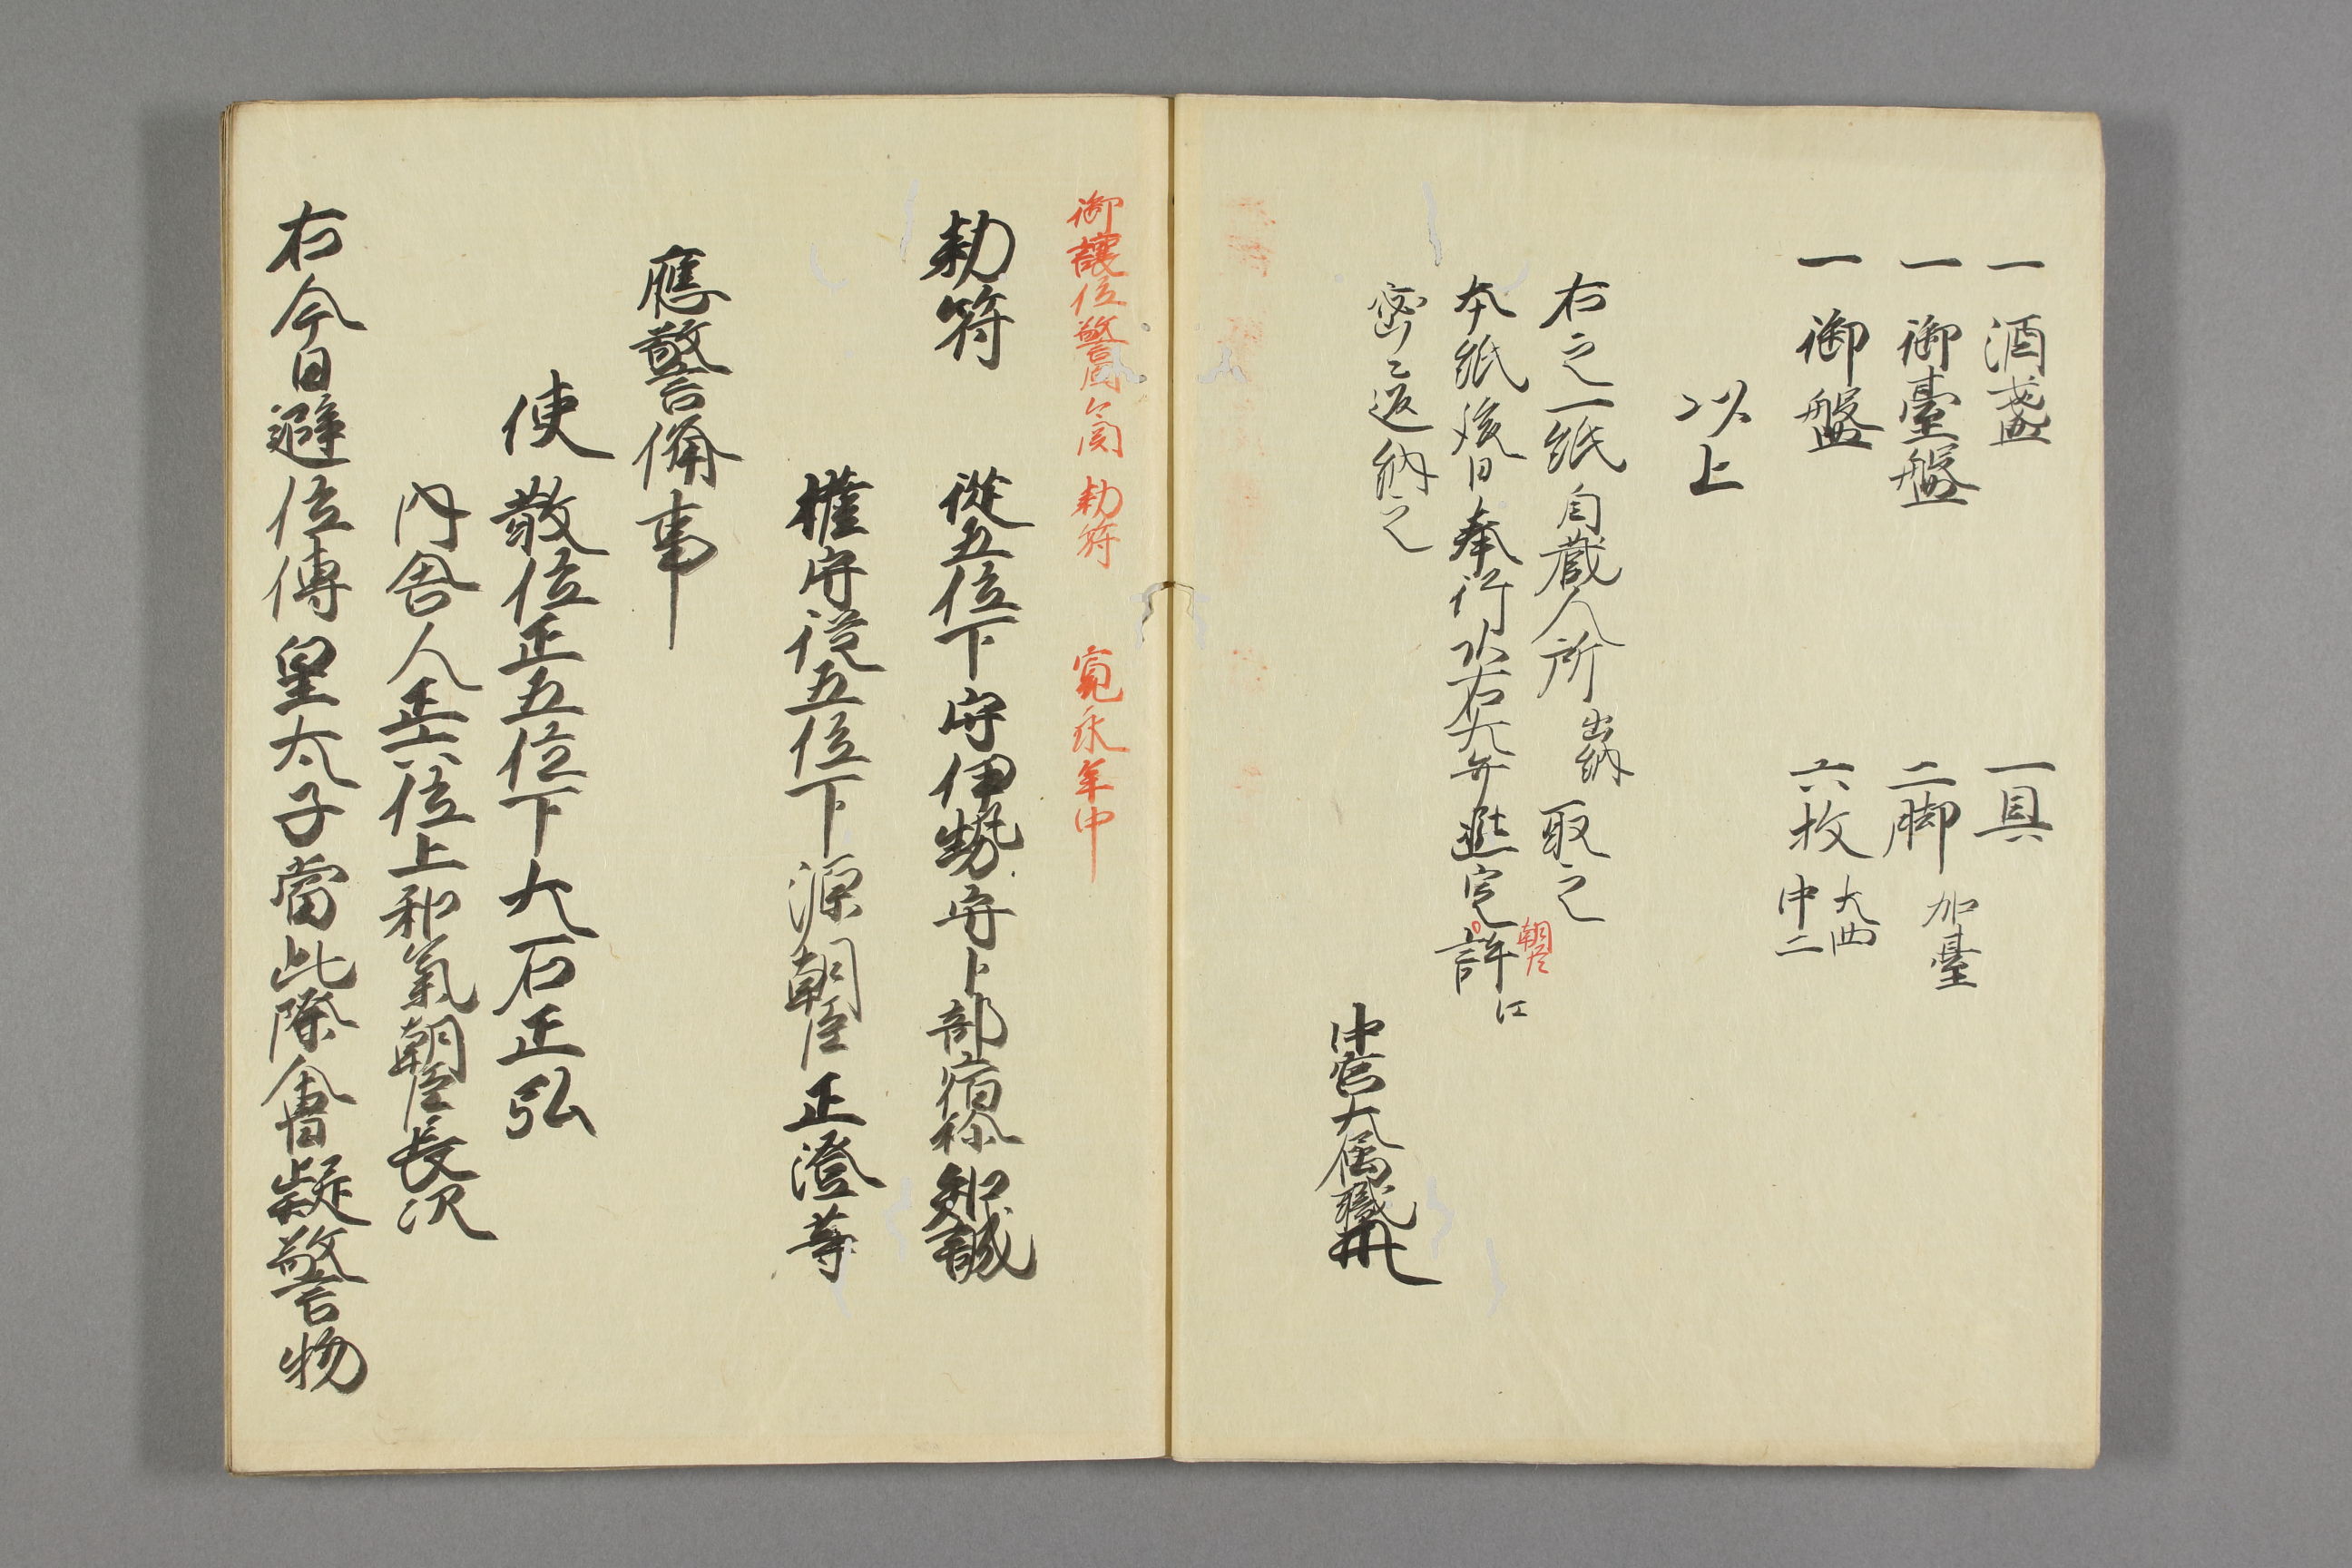 一酒盞　一具
一御臺盤　二脚　加臺
一御盤　六枚　大四
中二
以上
右之一紙自蔵人所出納取之
本紙後日奉行頭右大弁 朝臣 許江
密々返納之
中宮大属職
御譲位警固固関勅符　寛永年中
勅符　従五位下守伊勢守卜部宿祢知誠
權守従五位下源朝臣正澄等
應警備事
使散位正五位下大石正弘
内舎人正六位上和氣朝臣長次
右今日避位傳皇太子當此際會疑警物